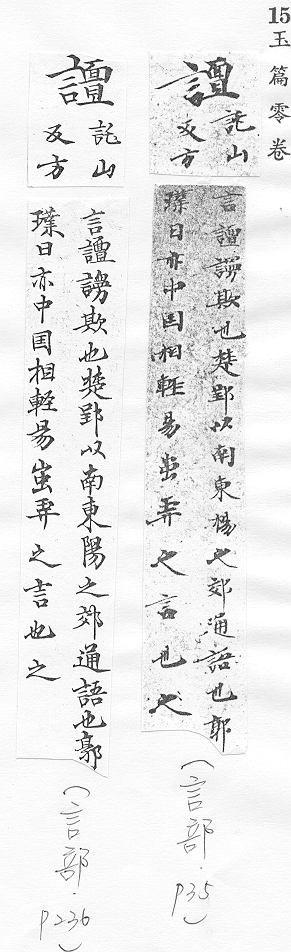 15玉篇零卷
譠
託山
反方
言譠謾欺也楚郢以南東楊之郊通語也郭
璞曰亦中囯相輕易蚩弄之言也之
(言部.P35)
譠
託山
反方
言譠謾欺也楚郢以南東陽之郊通語也郭
璞曰亦中囯相輕易蚩弄之言也之
(言部.P236)